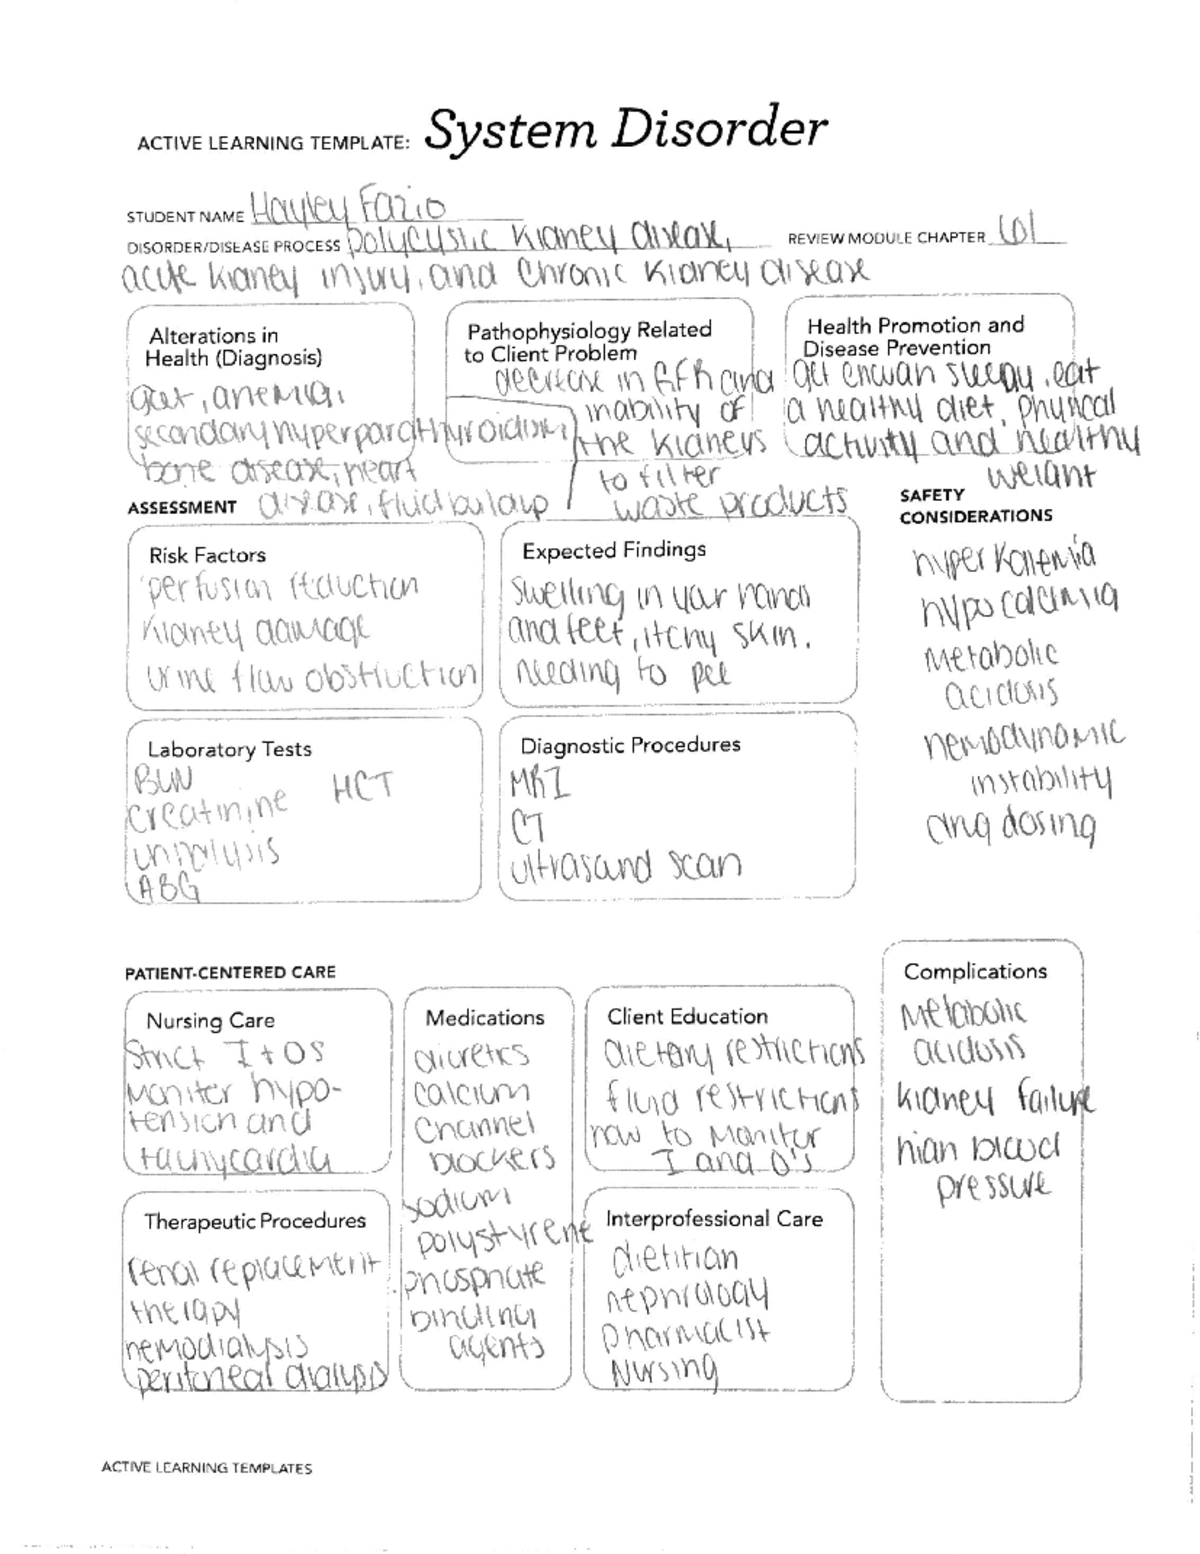 ACTIVE LEARNING TEMPLATE: System Disorder
STUDENT NAME Hayley Fazio
DISORDER/DISEASE PROCESS polycystic kidney disease,
REVIEW MODULE CHAPTER 61
acute kidney injury, and chronic kidney disease
Alterations in
Health (Diagnosis)
gout, anemia,
secondary hyperparathyroidism
bone disease, heart
disease, fluid buildup
Pathophysiology Related
to Client Problem
decrease in GFR and
inability of
the kidneys
to filter
waste products
Health Promotion and
Disease Prevention
get enough sleep, eat
a healthy diet, physical
activity and healthy
weight
ASSESSMENT
SAFETY
CONSIDERATIONS
hyperkalemia
hypocalcemia
metabolic
acidosis
hemodynamic
instability
drug dosing
Risk Factors
perfusion reduction
kidney damage
urine flow obstruction
Expected Findings
swelling in your hands
and feet, itchy skin.
needing to pee
Laboratory Tests
BUN
HCT
creatinine
urinalysis
ABG
Diagnostic Procedures
MRI
CT
ultrasound scan
PATIENT-CENTERED CARE
Nursing Care
Strict I + OS
Monitor hypo-
tension and
tachycardia
Medications
diuretics
calcium
channel
blockers
sodium
polystyrene
phosphate
binding
agents
Client Education
dietary restrictions
fluid restrictions
how to monitor
I and O's
Therapeutic Procedures
renal replacement
therapy
hemodialysis
peritoneal dialysis
Interprofessional Care
dietitian
nephrology
pharmacist
Nursing
Complications
Metabolic
acidosis
kidney failure
high blood
pressure
ACTIVE LEARNING TEMPLATES